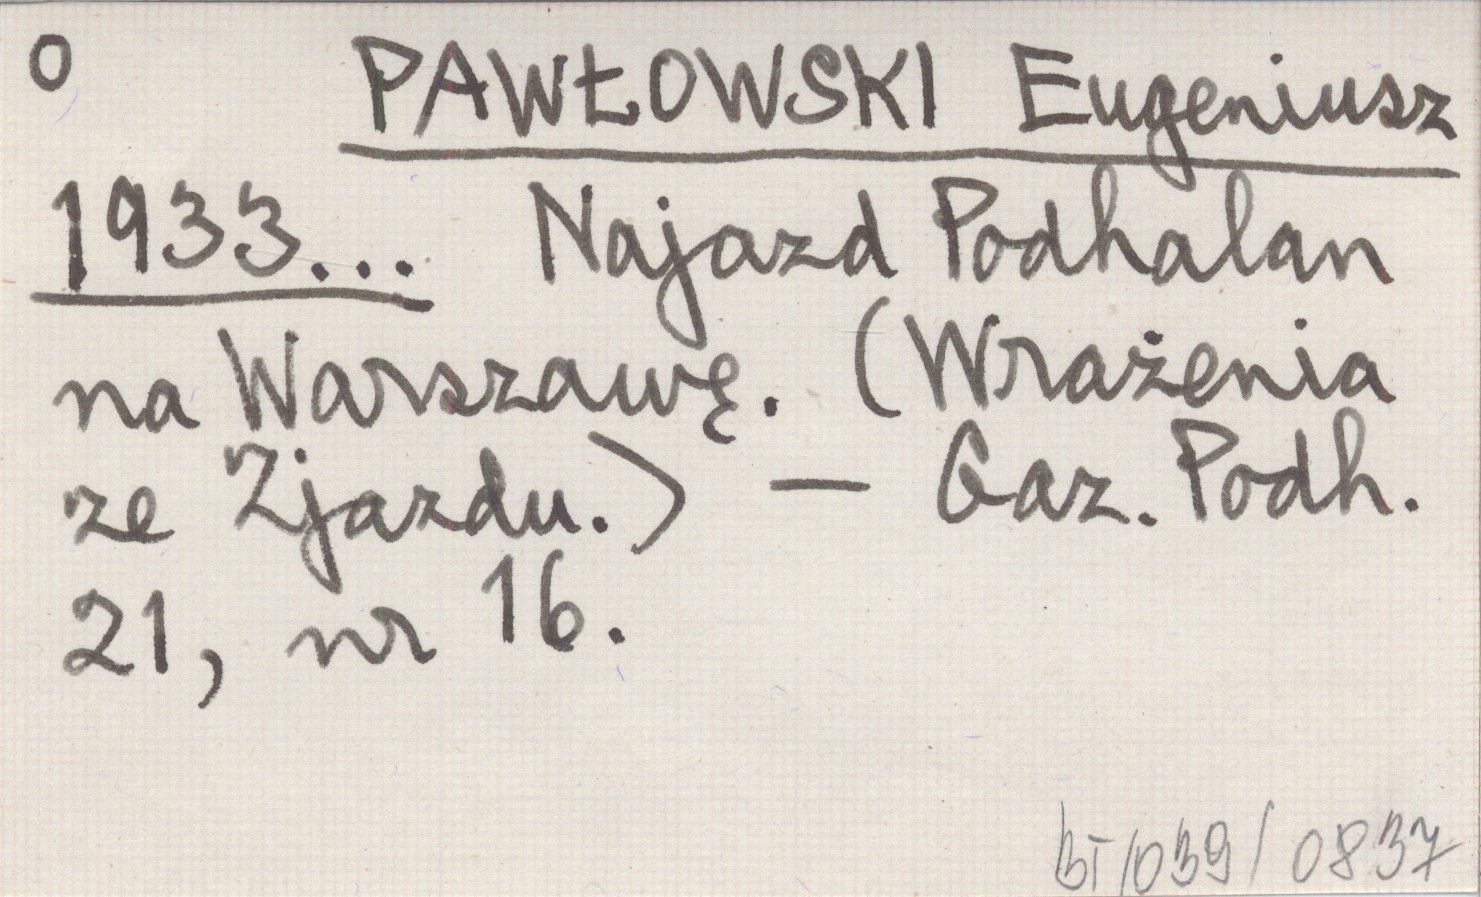 O PAWŁOWSKI Eugeniusz
1933... Najazd Podhalan
na Warszawę. (Wrażenia
ze Zjazdu.) — Gaz. Podh.
21, nr 16.
BT/039/0837